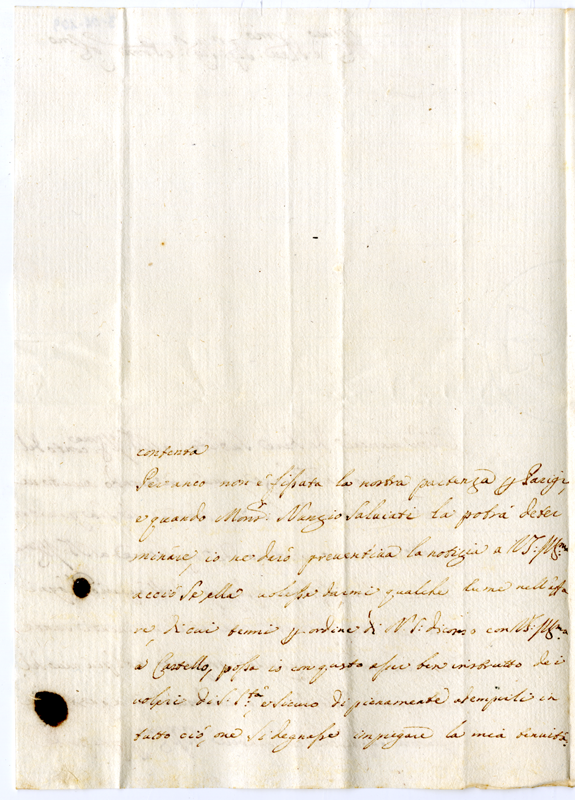 contenta
Per anco non è fissata la nostra partenza p Parigi,
e quando Monsr. Nunzio Salviati la potrà deter
minare, io ne darò preventiva la notizia a VS. Illma
acciò se ella volesse darmi qualche lume nell'affa
re, di cui tenni p ordine di N. S. discorso con VS. Illma
a Castello, possa io con questo esser ben instrutto dei
voleri di S. Stà, e sicuro di pienamente adempirli in
tutto ciò, che si degnasse impiegare la mia tenuità,